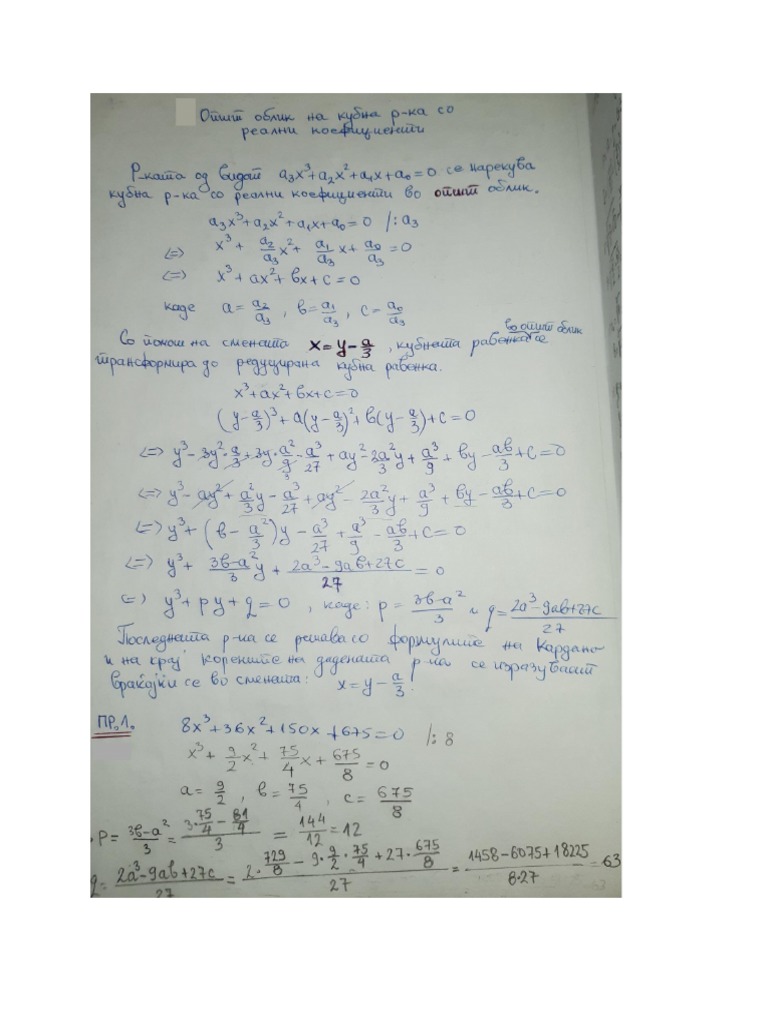 Општ облик на кубна р-ка со
реални коефициенти
Р-ката од видот a₃x³+a₂x²+a₁x+a₀=0 се нарекува
кубна р-ка со реални коефициенти во општ облик.
a₃x³+a₂x²+a₁x+a₀=0 /:a₃
<=> x³ + a₂/a₃ x² + a₁/a₃ x + a₀/a₃ = 0
<=> x³+ax²+вx+c=0
каде a = a₂/a₃ , в = a₁/a₃ , c = a₀/a₃
во општ облик
Со помош на смената x=y-a/3 , кубната равенка се
трансформира до редуцирана кубна равенка.
x³+ax²+вx+c=0
(y-a/3)³+a(y-a/3)²+в(y-a/3)+c=0
<=> y³-3y²·a/3+3y·a²/9-a³/27+ay²-2a²/3 y+a³/9+вy-aв/3+c=0
<=> y³-ay²+a²/3 y-a³/27+ay²-2a²/3 y+a³/9+вy-aв/3+c=0
<=> y³+(в-a²/3)y-a³/27+a³/9-aв/3+c=0
<=> y³+(3в-a²)/3 y+(2a³-9aв+27c)/27=0
<=> y³+py+q=0 , каде: p=(3в-a²)/3 и q=(2a³-9aв+27c)/27
Последната р-ка се решава со формулите на Кардано
и на крај корените на дадената р-ка се изразуваат
враќајќи се во смената: x=y-a/3.
ПР.1. 8x³+36x²+150x+675=0 /:8
x³+9/2 x²+75/4 x+675/8=0
a=9/2 , в=75/4 , c=675/8
p=(3в-a²)/3=(3·75/4-81/4)/3=144/12=12
q=(2a³-9aв+27c)/27=(2·729/8-9·9/2·75/4+27·675/8)/27=(1458-6075+18225)/(8·27)=63